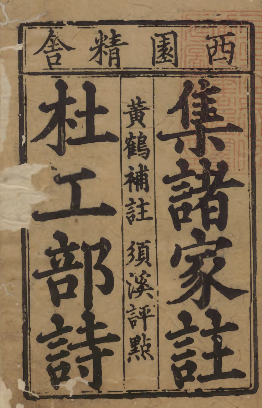 西園精舍
集諸家註
黃鶴補註 須溪評點
杜工部詩